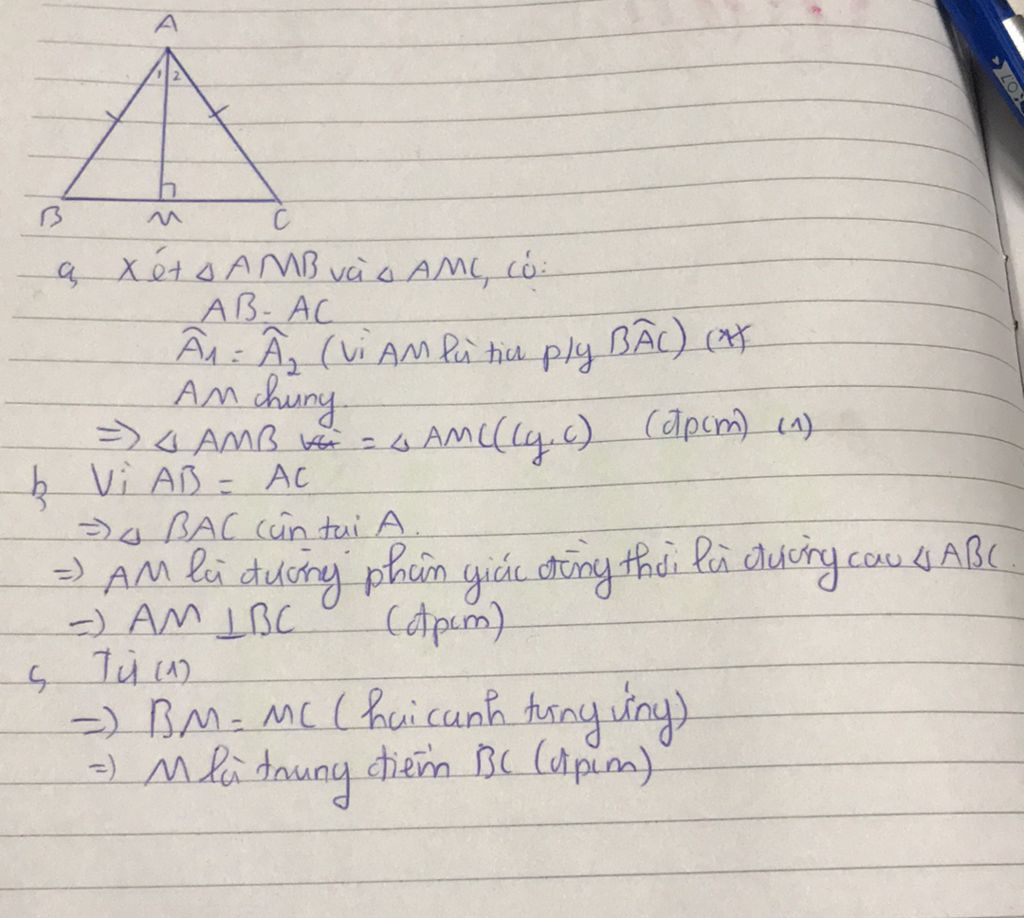 A
1 2
B M C
a, Xét △AMB và △AMC, có:
AB = AC
Â1 = Â2 (Vì AM là tia p/g BÂC) (*)
AM chung
=> △AMB = △AMC (c.g.c) (đpcm) (1)
b, Vì AB = AC
=> △BAC cân tại A.
=> AM là đường phân giác đồng thời là đường cao △ABC.
=> AM ⊥ BC (đpcm)
c, Từ (1)
=> BM = MC (hai cạnh tương ứng)
=> M là trung điểm BC (đpcm)
0.7